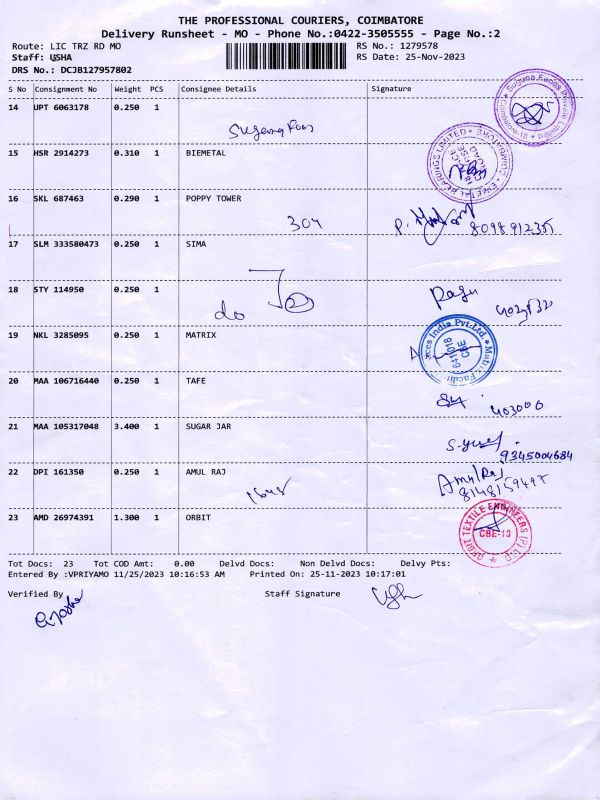 THE PROFESSIONAL COURIERS, COIMBATORE
Delivery Runsheet - MO - Phone No.:0422-3505555 - Page No.:2
Route: LIC TRZ RD MO RS No.: 1279578
Staff: USHA RS Date: 25-Nov-2023
DRS No.: DCJB127957802
S No Consignment No Weight PCS Consignee Details Signature
14 UPT 6063178 0.250 1
15 HSR 2914273 0.310 1 BIEMETAL
16 SKL 687463 0.290 1 POPPY TOWER
304 P. 8098912351
17 SLM 333580473 0.250 1 SIMA
18 STY 114950 0.250 1
do Ragu
19 NKL 3285095 0.250 1 MATRIX
20 MAA 106716440 0.250 1 TAFE
403000
21 MAA 105317048 3.400 1 SUGAR JAR
9345004684
22 DPI 161350 0.250 1 AMUL RAJ
Amul Raj
23 AMD 26974391 1.300 1 ORBIT
ORBIT TEXTILE ENGINEERS (P) LTD.
CBE-18
Tot Docs: 23 Tot COD Amt: 0.00 Delvd Docs: Non Delvd Docs: Delvy Pts:
Entered By :VPRIYAMO 11/25/2023 10:16:53 AM Printed On: 25-11-2023 10:17:01
Verified By Staff Signature